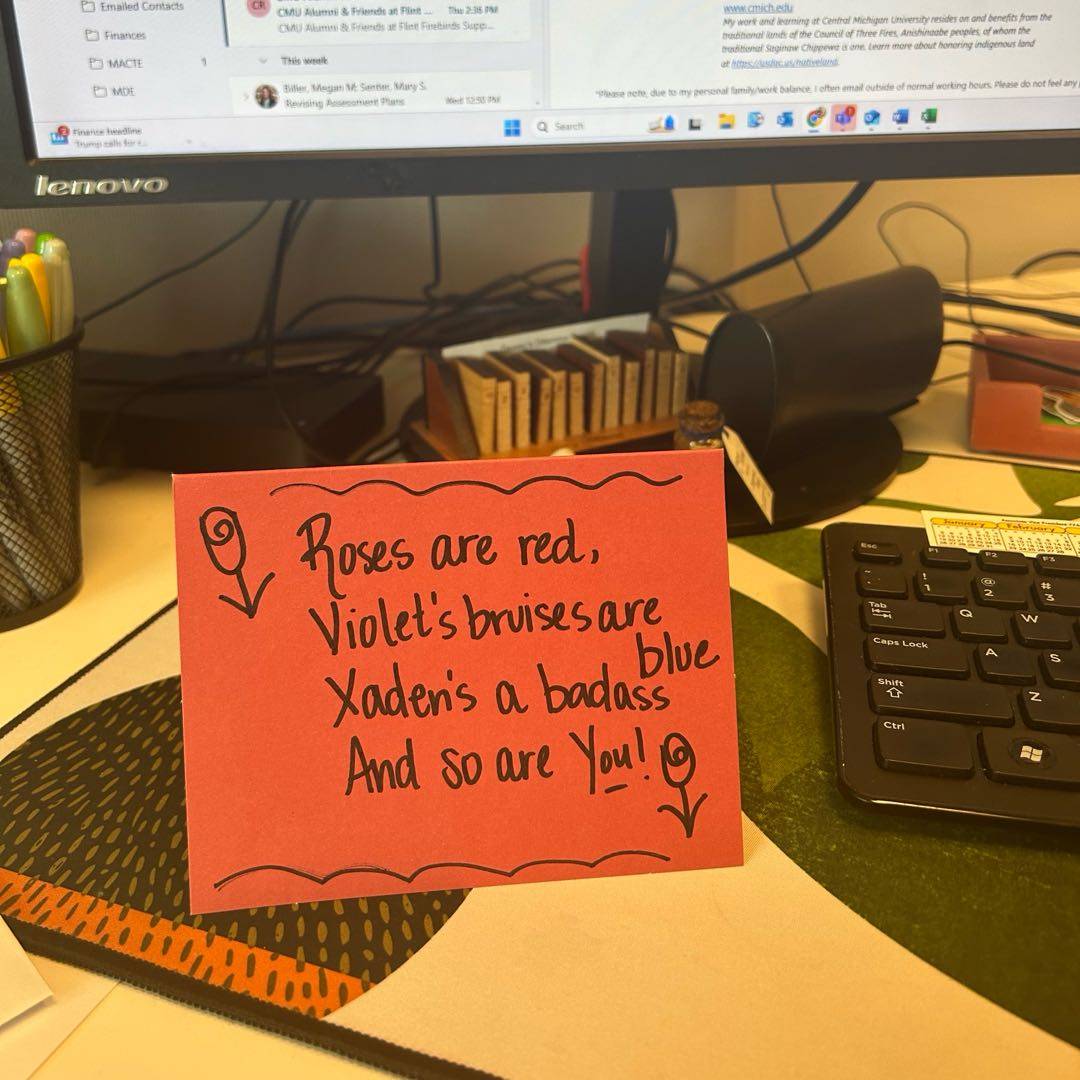 Emailed Contacts
Finances
MACTE 1
MDE
CR
CMU Alumni & Friends at Flint ... Thu 2:35 PM
CMU Alumni & Friends at Flint Firebirds Supp...
This week
Biller, Megan M; Senter, Mary S.
Revising Assessment Plans Wed 12:53 PM
www.cmich.edu
My work and learning at Central Michigan University resides on and benefits from the
traditional lands of the Council of Three Fires, Anishinaabe peoples, of whom the
traditional Saginaw Chippewa is one. Learn more about honoring indigenous land
at https://usdac.us/nativeland.
*Please note, due to my personal family/work balance, I often email outside of normal working hours. Please do not feel any
Finance headline
Trump calls for r...
Search
lenovo
Roses are red,
Violet's bruises are
blue
Xaden's a badass
And so are You!
January February
Esc F1 F2 F3
~ ! 1 @ 2 # 3
Tab Q W
Caps Lock A S
Shift Z
Ctrl